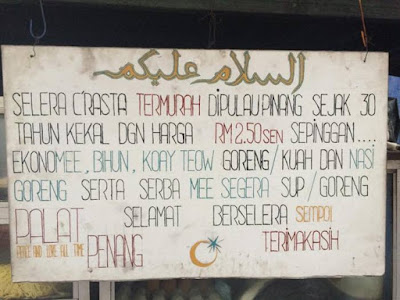 السلام عليكم
SELERA C'RASTA TERMURAH DIPULAU PINANG SEJAK 30
TAHUN KEKAL DGN HARGA RM 2.50 SEN SEPINGGAN....
EKONOMEE, BIHUN, KOAY TEOW GORENG/KUAH DAN NASI
GORENG SERTA SERBA MEE SEGERA SUP/GORENG
PALAT SELAMAT BERSELERA SEMPOI
PEACE AND LOVE ALL TIME
PENANG TERIMAKASIH